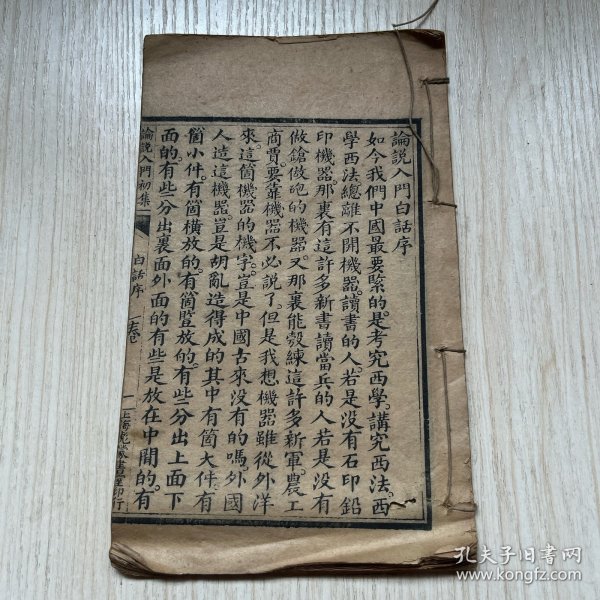 論說入門白話序
如今我們中國最要緊的是考究西學。講究西法。西
學西法總離不開機器。讀書的人。若是沒有石印鉛
印機器。那裏有這許多新書讀。當兵的人。若是沒有
做鎗做砲的機器。又那裏能彀練這許多新軍。農工
商賈。要靠機器。不必說了。但是我想機器雖從外洋
來。這箇機器的機字。豈是中國古來沒有的嗎。外國
人造這機器。豈是胡亂造得成的。其中有箇大件。有
箇小件。有箇橫放的。有箇豎放的。有些分出上面下
面的。有些分出裏面外面的。有些是放在中間的。有
論說入門初集
白話序
印行
孔夫子旧书网
www.kongfz.com